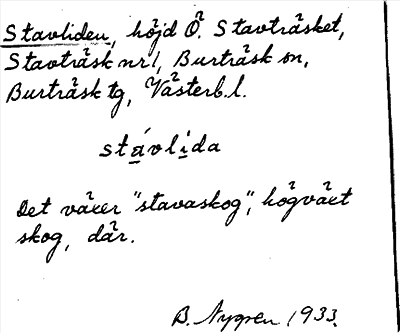 Stavliden, höjd Ö. Stavträsket,
Stavträsk nr 1, Burträsk sn,
Burträsk tg, Västerb. l.
stávlida
Det växer "stavaskog", högväxt
skog, där.
B. Nygren 1933.